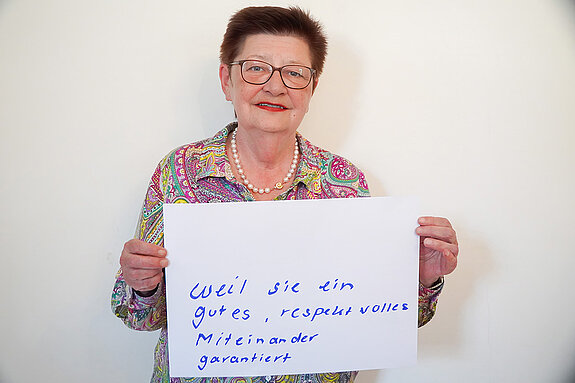 weil sie ein
gutes, respektvolles
Miteinander
garantiert